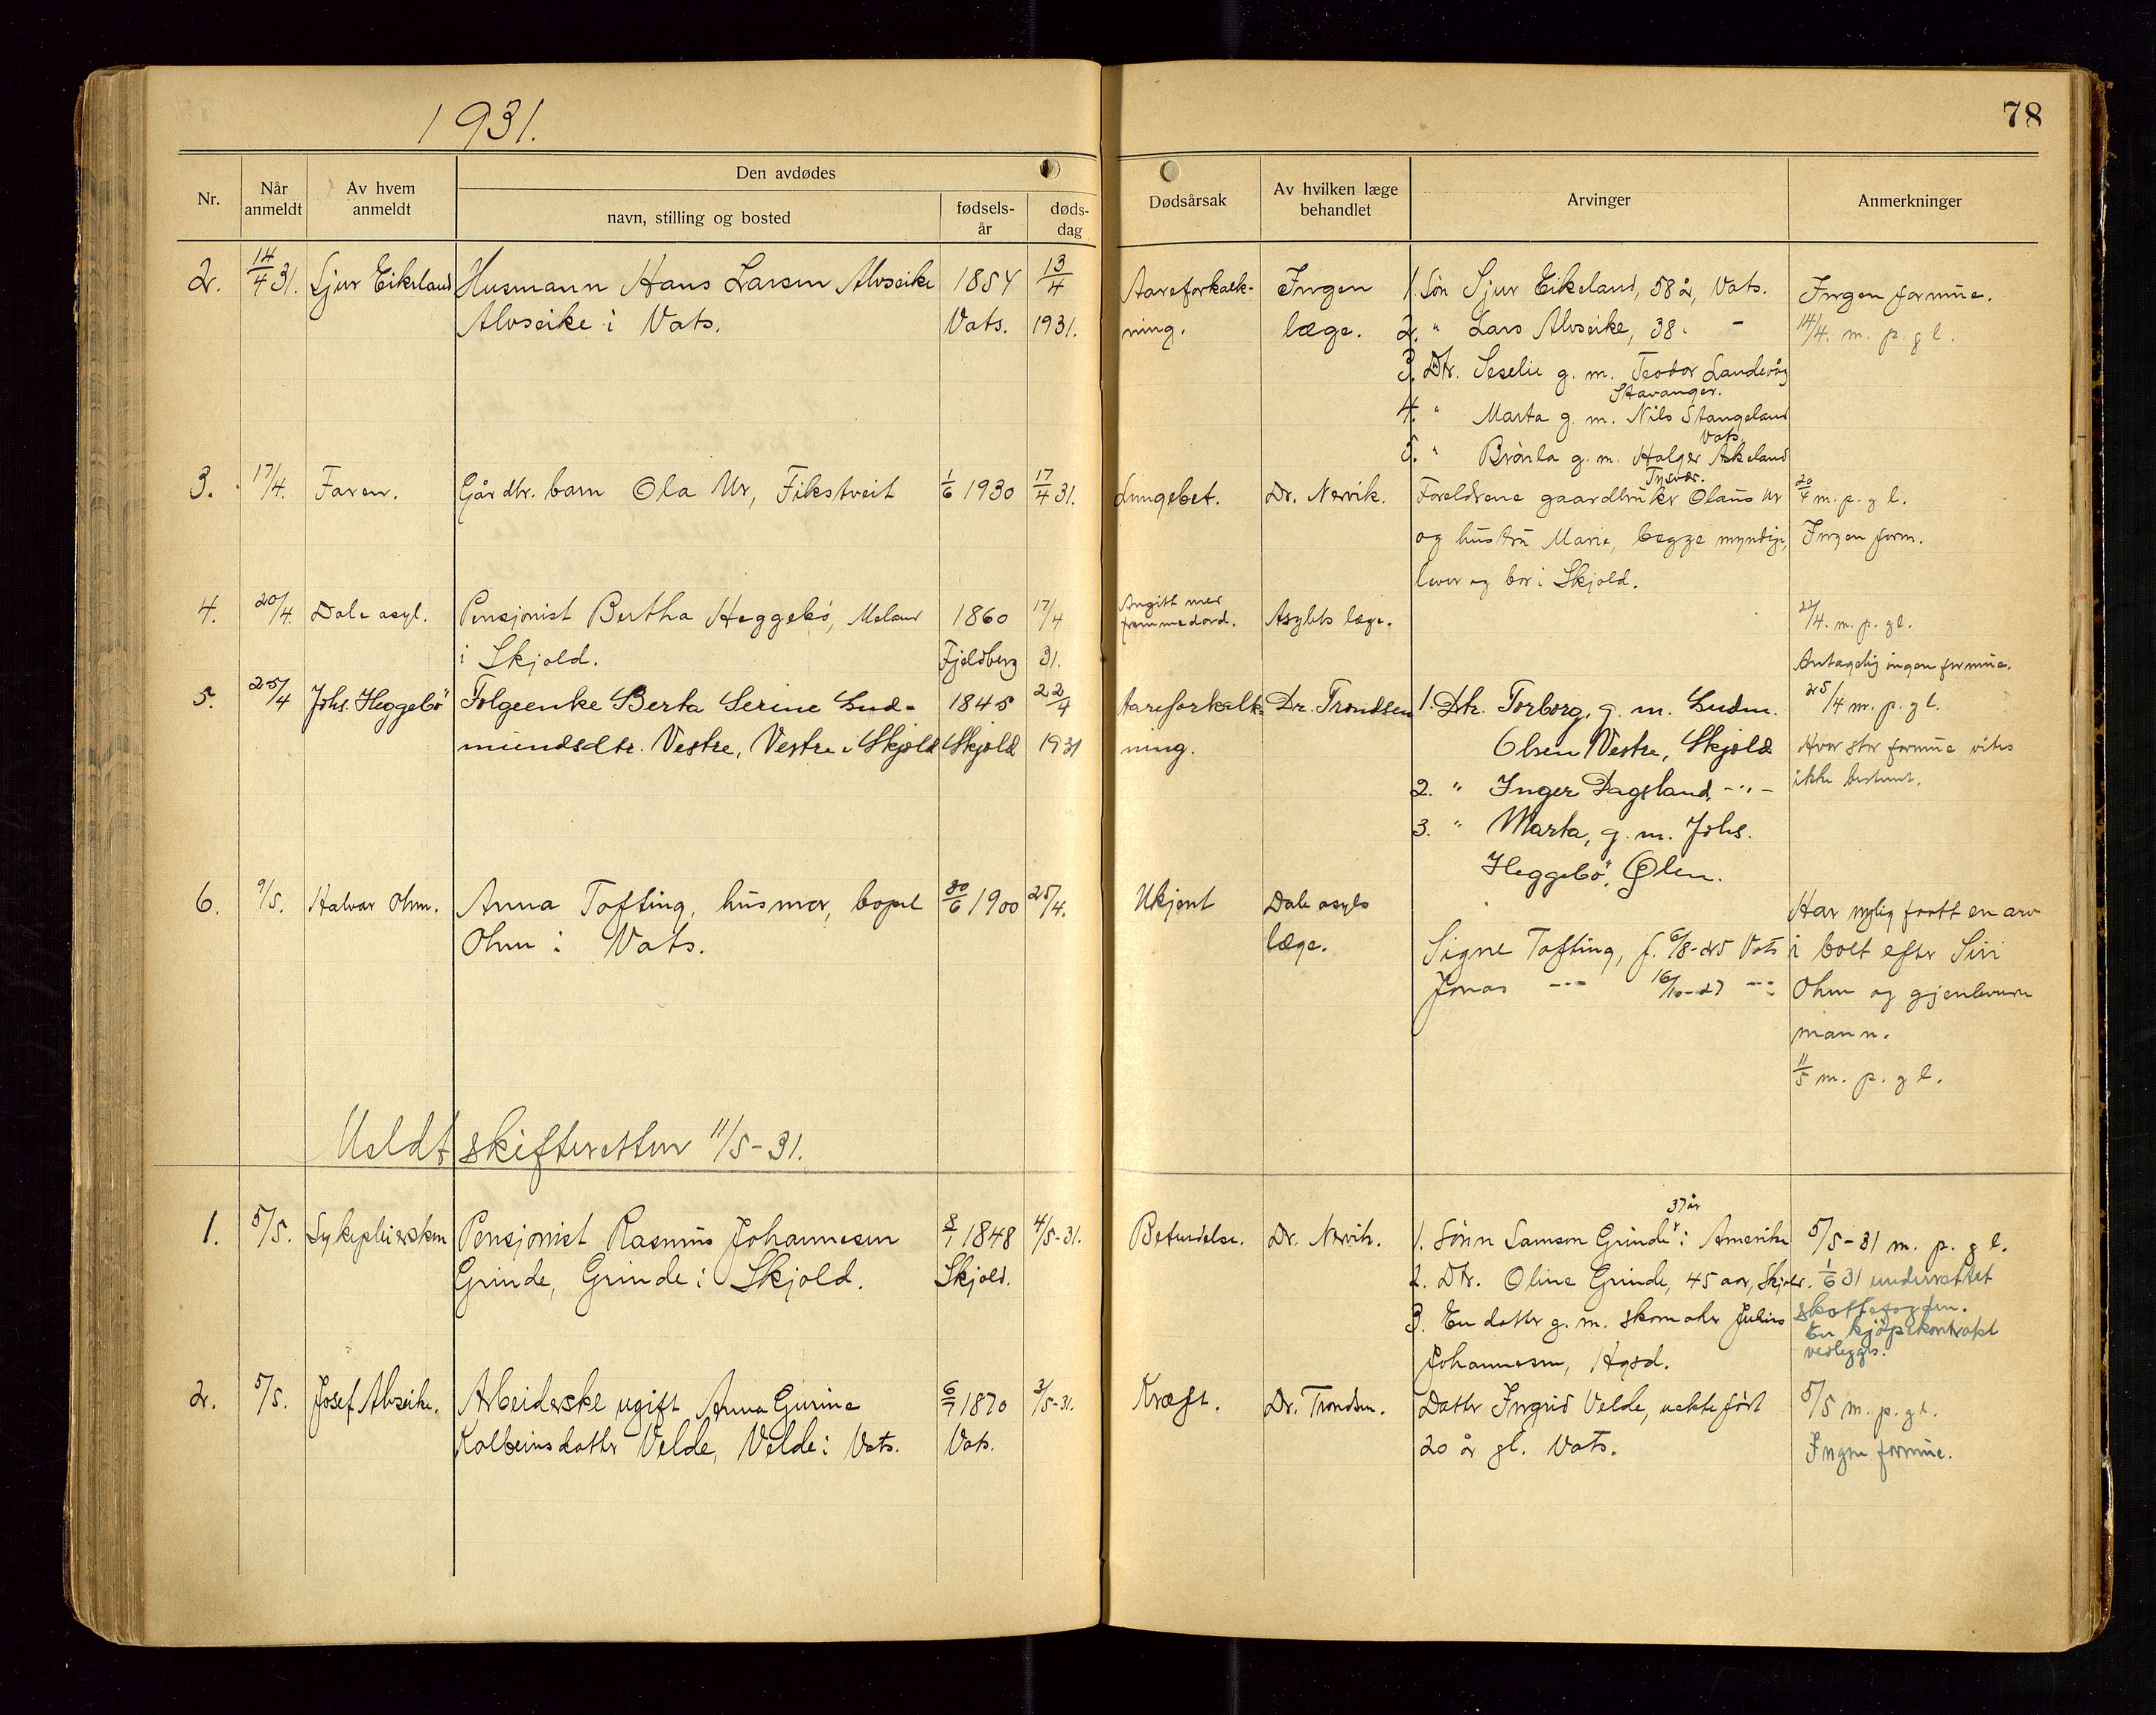 1931.
78
Nr.
Når anmeldt
Av hvem anmeldt
Den avdødes
navn, stilling og bosted
fødsels-år
døds-dag
Dødsårsak
Av hvilken læge behandlet
Arvinger
Anmerkninger
2. 14/4 31. Sjur Eikeland Husmann Hans Larsen Alvseike 1854 13/4 Aareforkalk- Ingen 1. Søn Sjur Eikeland, 58 år, Vats. Ingen formue.
Alvseike i Vats. Vats. 1931. ning. læge. 2. " Lars Alvseike, 38. - 14/4. m. p. g l.
3. Dtr. Seselie g. m. Teodor Landevåg
Stavanger.
4. " Marta g. m. Nils Stangeland
Vats.
5. " g. m. Holger Askeland
Tysvær.
3. 17/4. Faren. Gårdbr. barn Ola Ur, Fikstveit 1/6 1930 17/4 31. Lungebet. Dr. Nervik. Foreldrene gaardbruker Olaus Ur 20/4 m. p. g l.
og hustru Marie, begge myndige, Ingen form.
lever og bor i Skjold.
4. 20/4. Dale asyl. Pensjonist Bertha Heggebö, Meland 1860 17/4 Angitt med Asylets læge. 22/4. m. p. gl.
fremmedord.
i Skjold. Fjeldberg 31. Antagelig ingen formue.
5. 25/4 Johs. Heggebö Folgeenke Berta Serine Gud- 1845 22/4 Aareforkalk- Dr. Trondsen 1. Dtr. Torborg, g. m. Gudm. 25/4 m. p. g l.
mundsdtr. Vestre, Vestre i Skjold Skjold 1931 ning. Olsen Vestre, Skjold Hvor stor formue vites
2. " Inger Dagsland, -"- ikke bestemt.
3. " Marta, g. m. Johs.
Heggebö, Ølen.
6. 9/5. Halvar Ohm. Anna Tofting, husmor, bopel 30/6 1900 25/4. Ukjent Dale asyls Har nylig faatt en arv
Ohm i Vats. læge. Signe Tofting, f. 6/8-25 Vats i boet efter Siri
Jonas -"- 16/10-27 -"- Ohm og gjenlevende
mann.
11/5 m. p. g l.
Meldt skifteretten 11/5-31.
1. 5/5. Sykepleiersken Pensjonist Rasmus Johannesen 8/7 1848 4/5-31. Betendelse. Dr. Nervik. 1. Sönn Samson Grinde 37 år i Amerika 5/5-31 m. p. g l.
Grinde, Grinde i Skjold. Skjold. 2. Dtr. Oline Grinde, 45 aar, Skjold. 1/6 31 underrettet
3. En datter g. m. skomaker Julius skattefogden.
En kjöpekontrakt
Johannesen, Hgsd. vedlegges.
2. 5/5. Josef Alvseike. Arbeiderske ugift Anna Gurine 6/7 1870 3/5-31. Kræft. Dr. Trondsen. Datter Ingrid Velde, uektefödt 5/5 m. p. g l.
Kolbeinsdatter Velde, Velde i Vats. Vats. 20 år gl. Vats. Ingen formue.